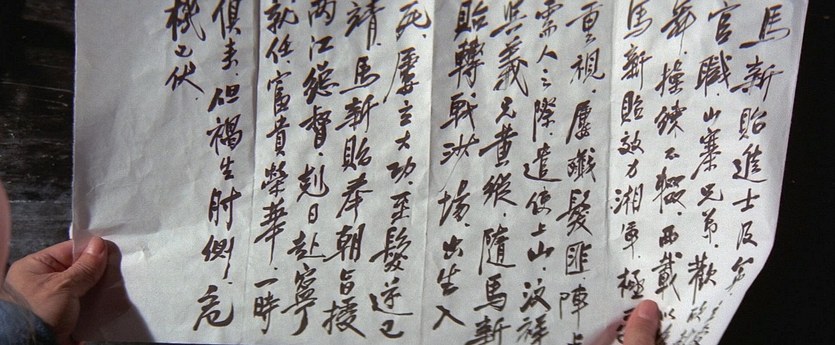 馬新貽進士及第、
官職、山寨兄弟、歡
年、操練不輟、兩載以
馬新貽效力湘軍、極
重視、屢殲髮匪、陣
需人之際、遣使上山、汶祥
與義兄黃縱、隨馬新
貽轉戰沙場、出生入
死、屢立大功、至髮逆已
靖、馬新貽奉朝旨授
兩江總督、剋日赴寧
就任、富貴榮華、一時
俱來、但禍生肘側、危
機已伏、